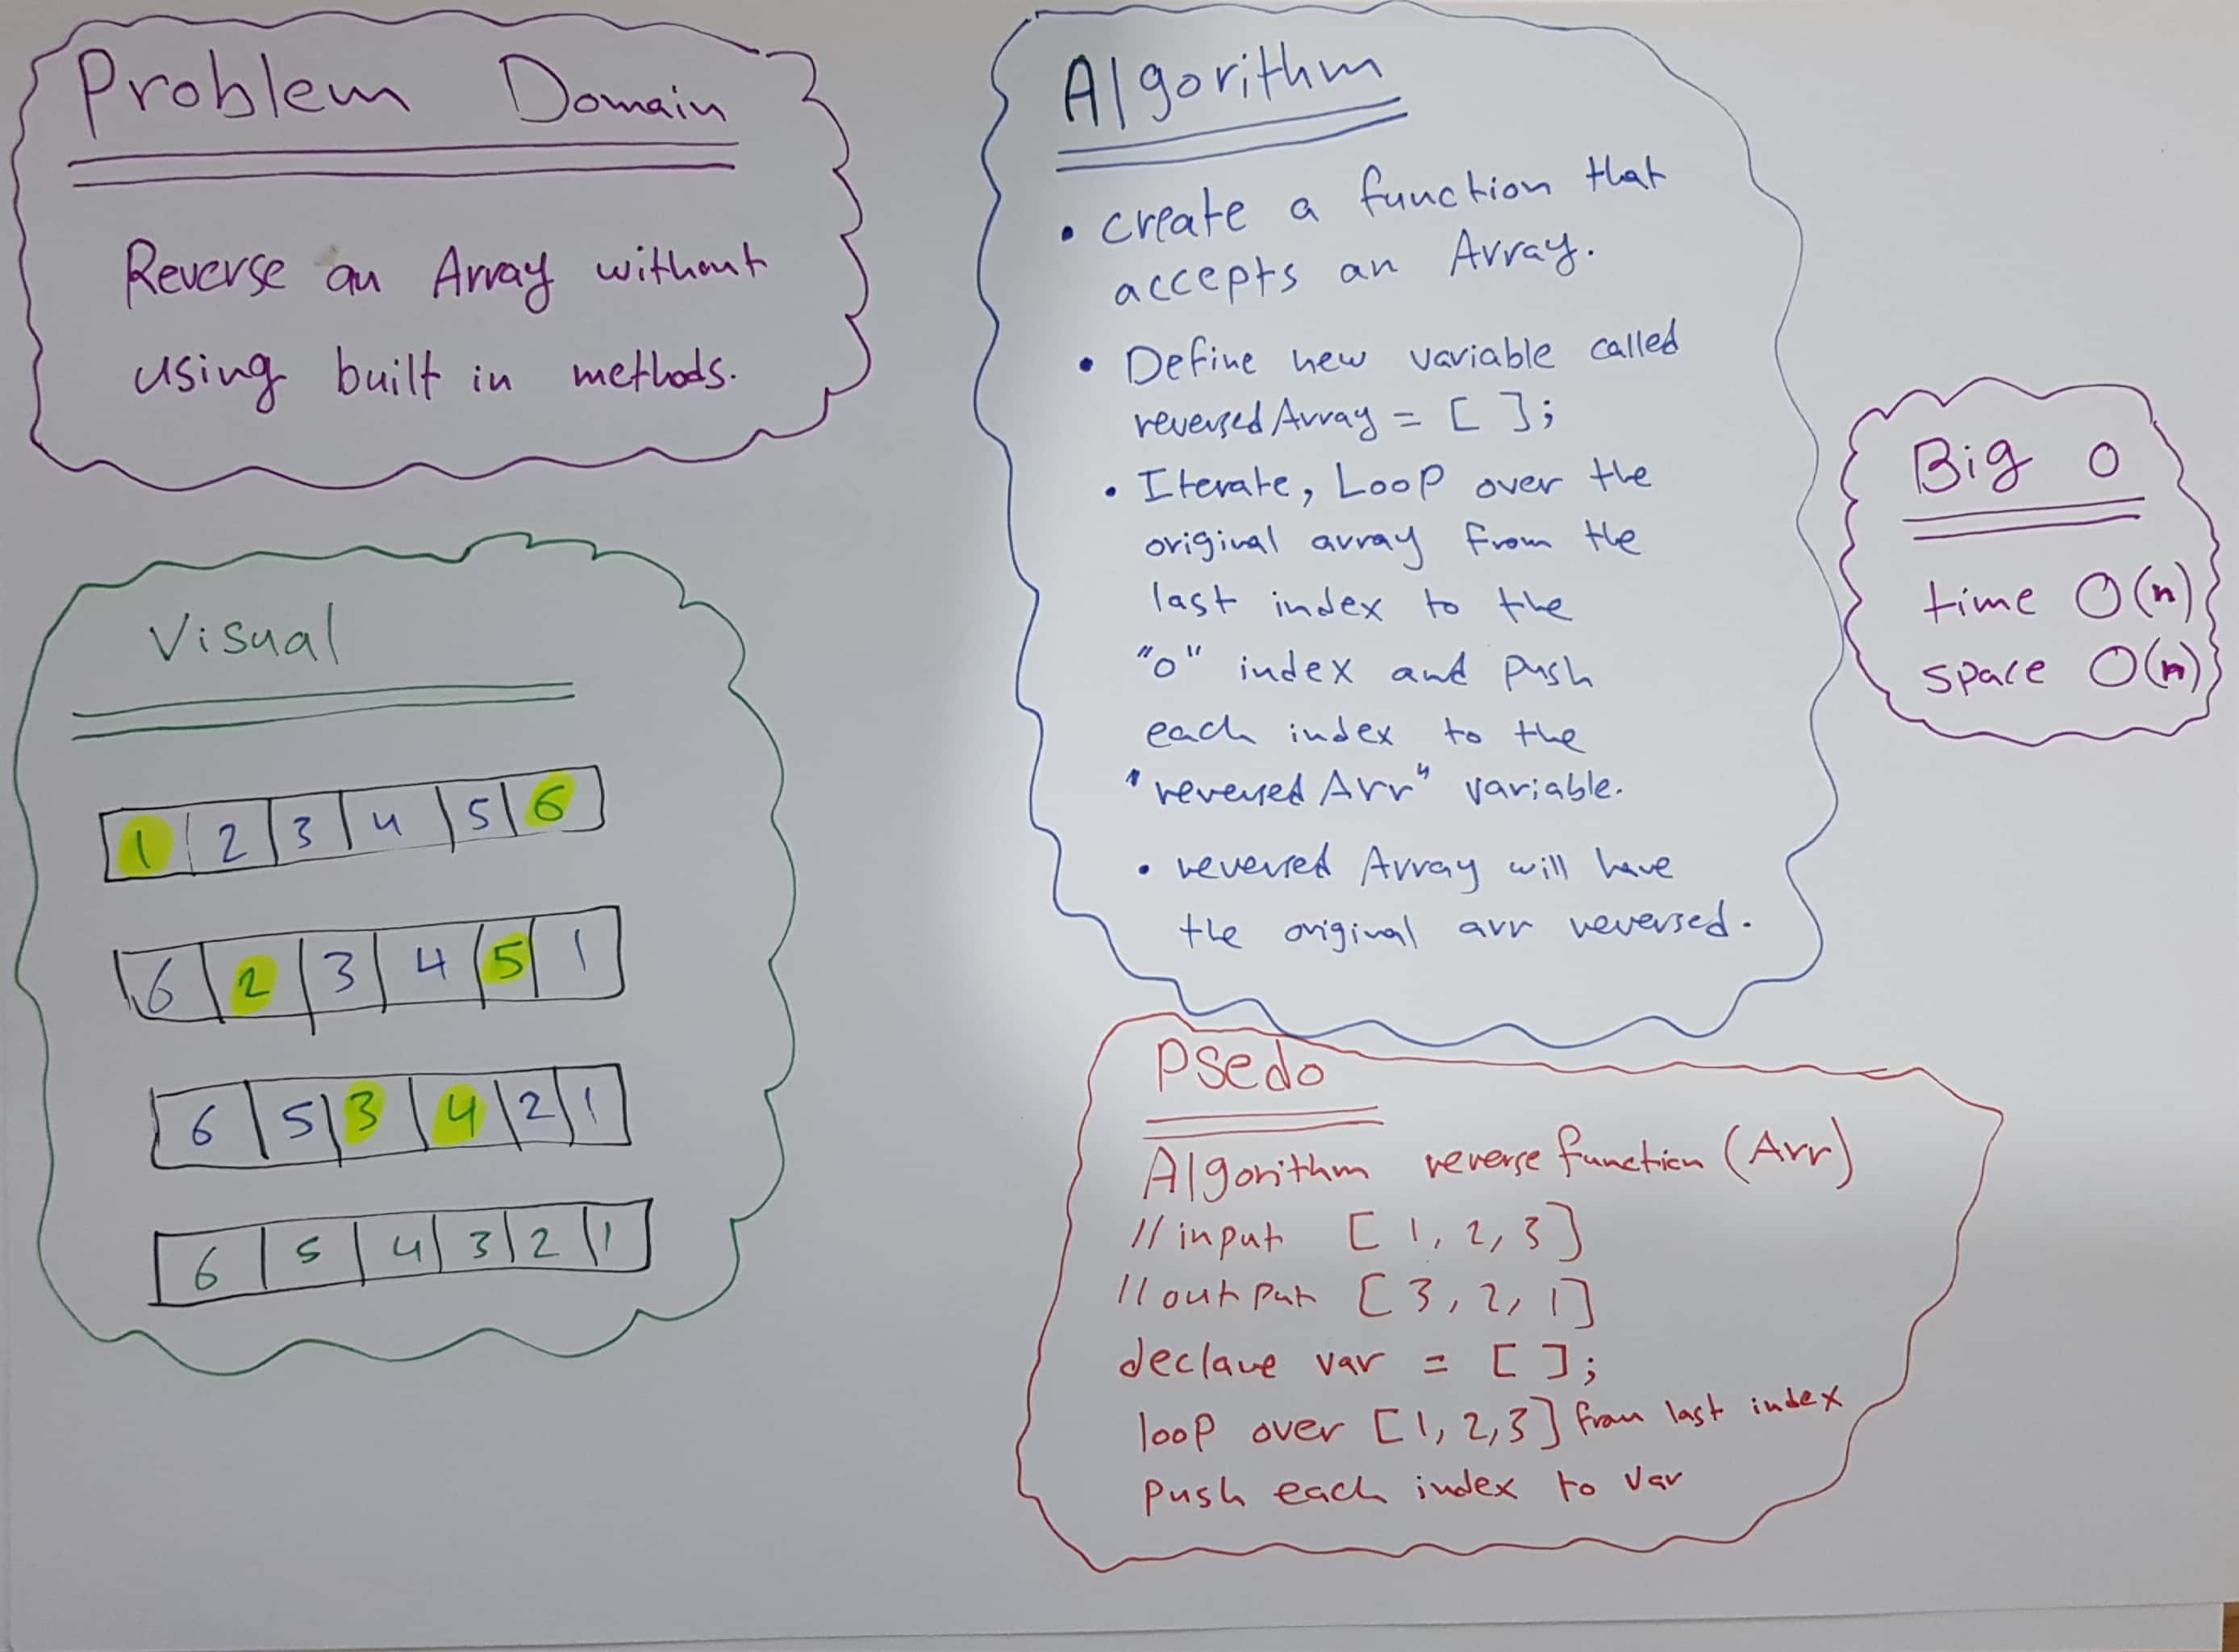 Problem Domain
Reverse an Array without
using built in methods.
Visual
1 2 3 4 5 6
6 2 3 4 5 1
6 5 3 4 2 1
6 5 4 3 2 1
Algorithm
• create a function that
accepts an Array.
• Define new variable called
reversedArray = [ ];
• Iterate, Loop over the
original array from the
last index to the
"0" index and push
each index to the
"reversed Arr" variable.
• reversed Array will have
the original arr reversed.
Big O
time O(n)
space O(n)
Psedo
Algorithm reverse function (Arr)
// input [ 1, 2, 3 ]
// output [ 3, 2, 1 ]
declare var = [ ];
loop over [1, 2, 3] from last index
push each index to var